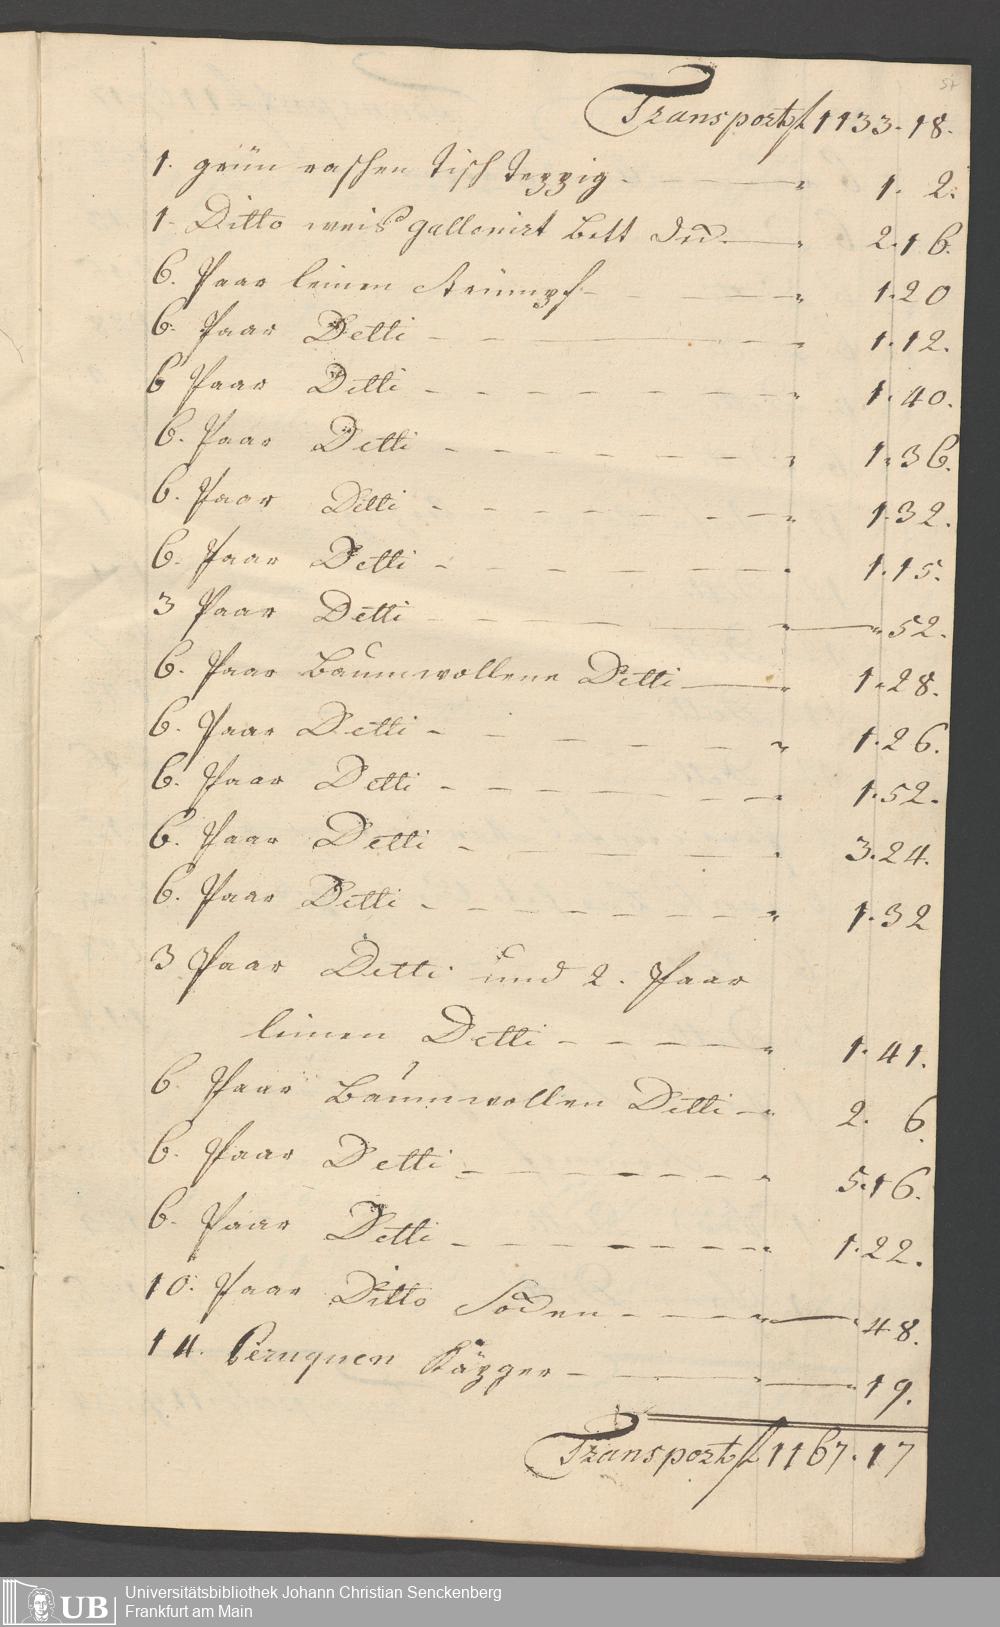 57
Transport f 1133. 18.
1. grün raschen Tisch Teppig — " 1. 2.
1. Ditto weis gallonirt Bett — " 2. 16.
6. Paar leinen Strümpf — " 1. 20
6. Paar Detti — " 1. 12.
6 Paar Detti — " 1. 40.
6. Paar Detti — " 1. 36.
6. Paar Detti — " 1. 32.
6. Paar Detti — " 1. 15.
3 Paar Detti — " — " 52.
6. Paar Baumwollene Detti — " 1. 28.
6. Paar Detti — " 1. 26.
6. Paar Detti — " 1. 52.
6. Paar Detti — " 3. 24.
6. Paar Detti — " 1. 32
3 Paar Detti und 2. Paar
leinen Detti — " 1. 41.
6 Paar Baumwollen Detti — " 2. 6.
6. Paar Detti — " 5. 16.
6. Paar Detti — " 1. 22.
10. Paar Ditto Soden — " — " 48.
14. Peruquen — " — " 19.
Transport f 1167. 17
UB
Universitätsbibliothek Johann Christian Senckenberg
Frankfurt am Main